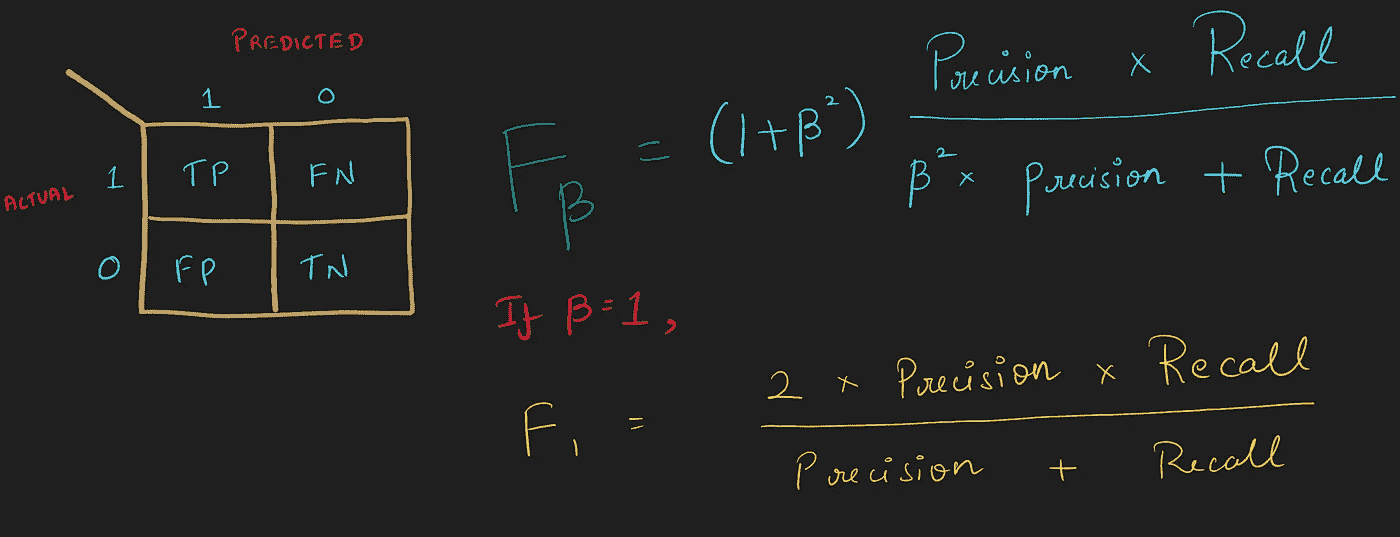 PREDICTED
1 0
ACTUAL 1 TP FN
0 FP TN
F_β = (1+β²) Precision × Recall / β² × Precision + Recall
If β=1,
F₁ = 2 × Precision × Recall / Precision + Recall